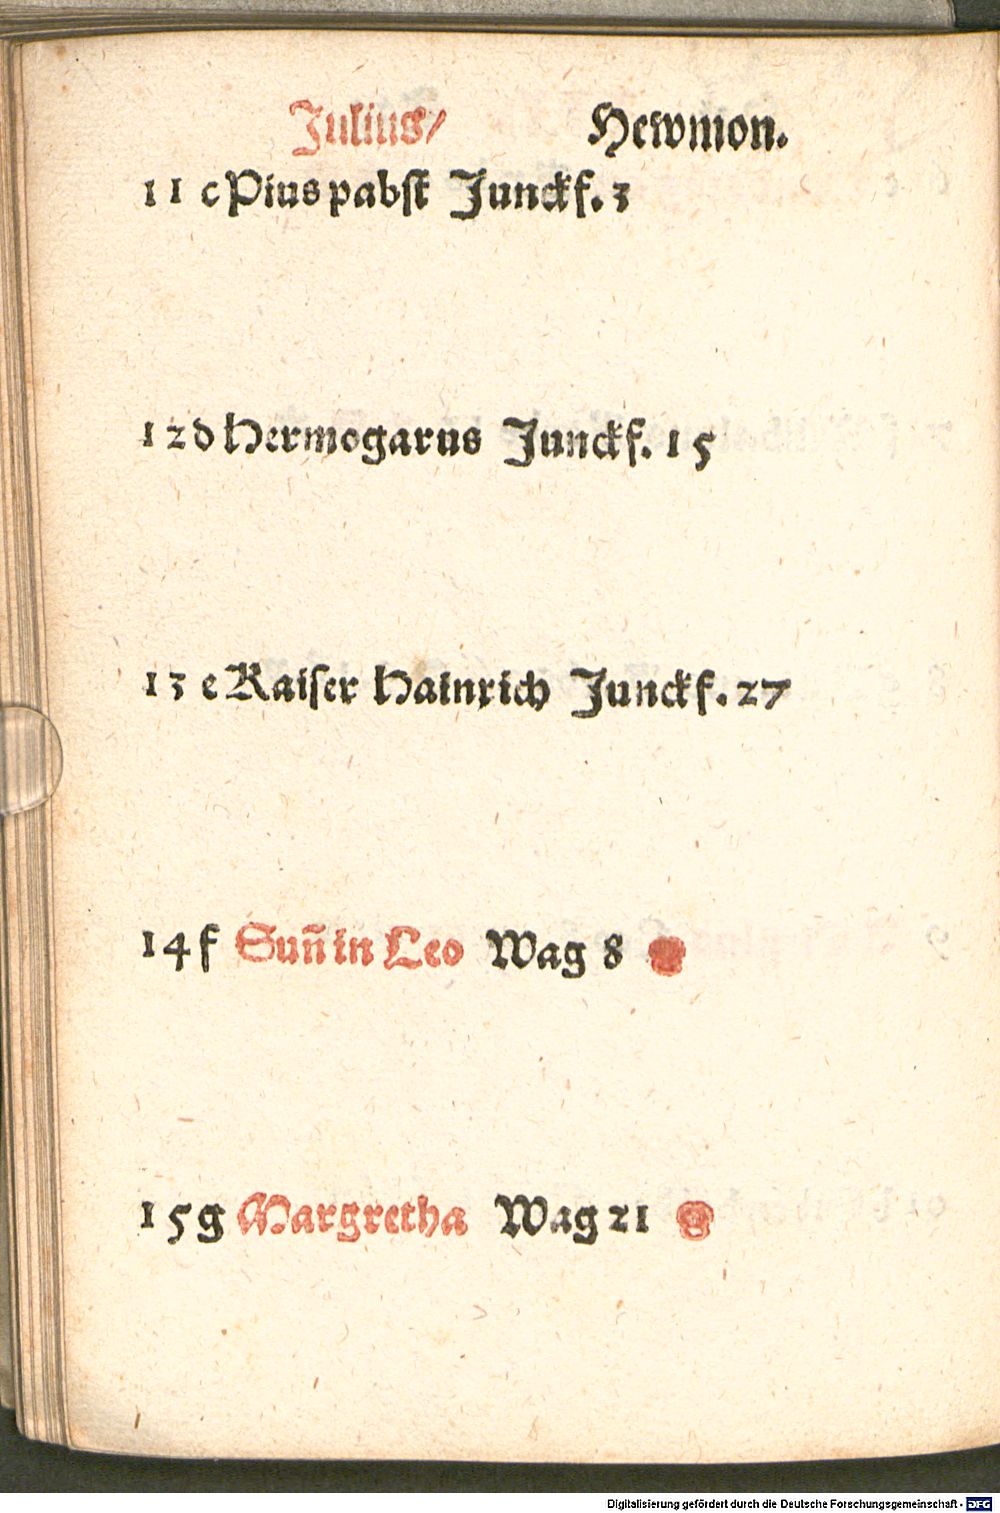 Julius/ Hewmon.
11 c Pius pabst Junckf. 3
12 d Hermogarus Junckf. 15
13 e Kaiser Hainrich Junckf. 27
14 f Suñ in Leo Wag 8
15 g Margretha Wag 21
Digitalisierung gefördert durch die Deutsche Forschungsgemeinschaft - DFG